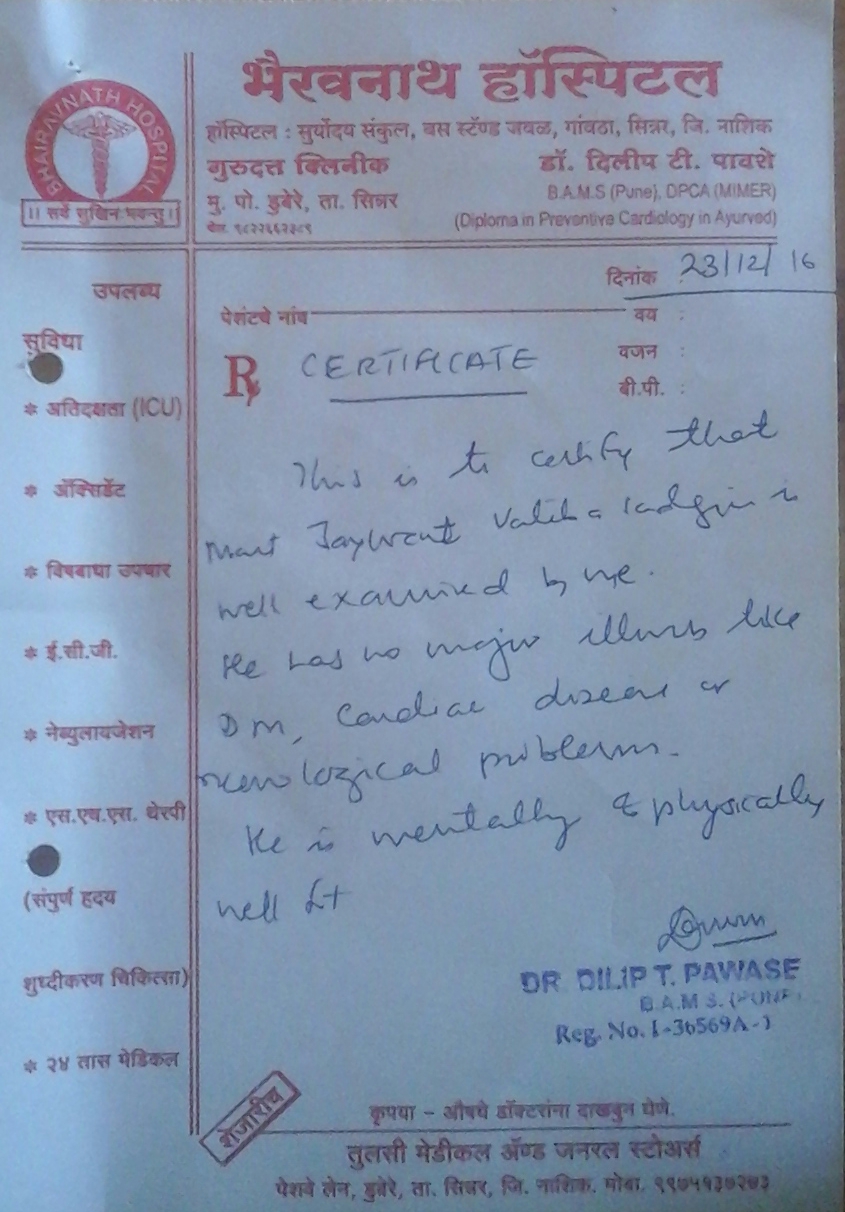 भैरवनाथ हॉस्पिटल
BHAIRAVNATH HOSPITAL
।। सर्वे सुखिनः भवन्तु ।।
हॉस्पिटल : सुर्योदय संकुल, बस स्टॅण्ड जवळ, गांवठा, सिन्नर, जि. नाशिक
गुरुदत्त क्लिनीक
मु. पो. डुबेरे, ता. सिन्नर
डॉ. दिलीप टी. पावशे
B.A.M.S (Pune), DPCA (MIMER)
(Diploma in Preventive Cardiology in Ayurved)
दिनांक : 23/12/16
पेशंटचे नांव
वय :
वजन :
बी.पी. :
उपलब्ध
सुविधा
* अतिदक्षता (ICU)
* ॲक्सिडेंट
* विषबाधा उपचार
* ई.सी.जी.
* नेब्युलायजेशन
* एस.एच.एस. थेरपी
(संपुर्ण हृदय
शुध्दीकरण चिकित्सा)
* २४ तास मेडिकल
Rx CERTIFICATE
This is to certify that
Jaywant is
well examined by me.
He has no major illness like
DM, Cardiac disease or
neurological problems.
He is mentally & physically
well fit
DR. DILIP T. PAWASE
B.A.M.S. (PUNE)
Reg. No. I-36569A-1
शेजारीच
कृपया - औषधे डॉक्टरांना दाखवुन घेणे.
तुलसी मेडीकल ॲण्ड जनरल स्टोअर्स
पेशवे लेन, डुबेरे, ता. सिन्नर, जि. नाशिक. मोबा. ९९७५१३७२७३